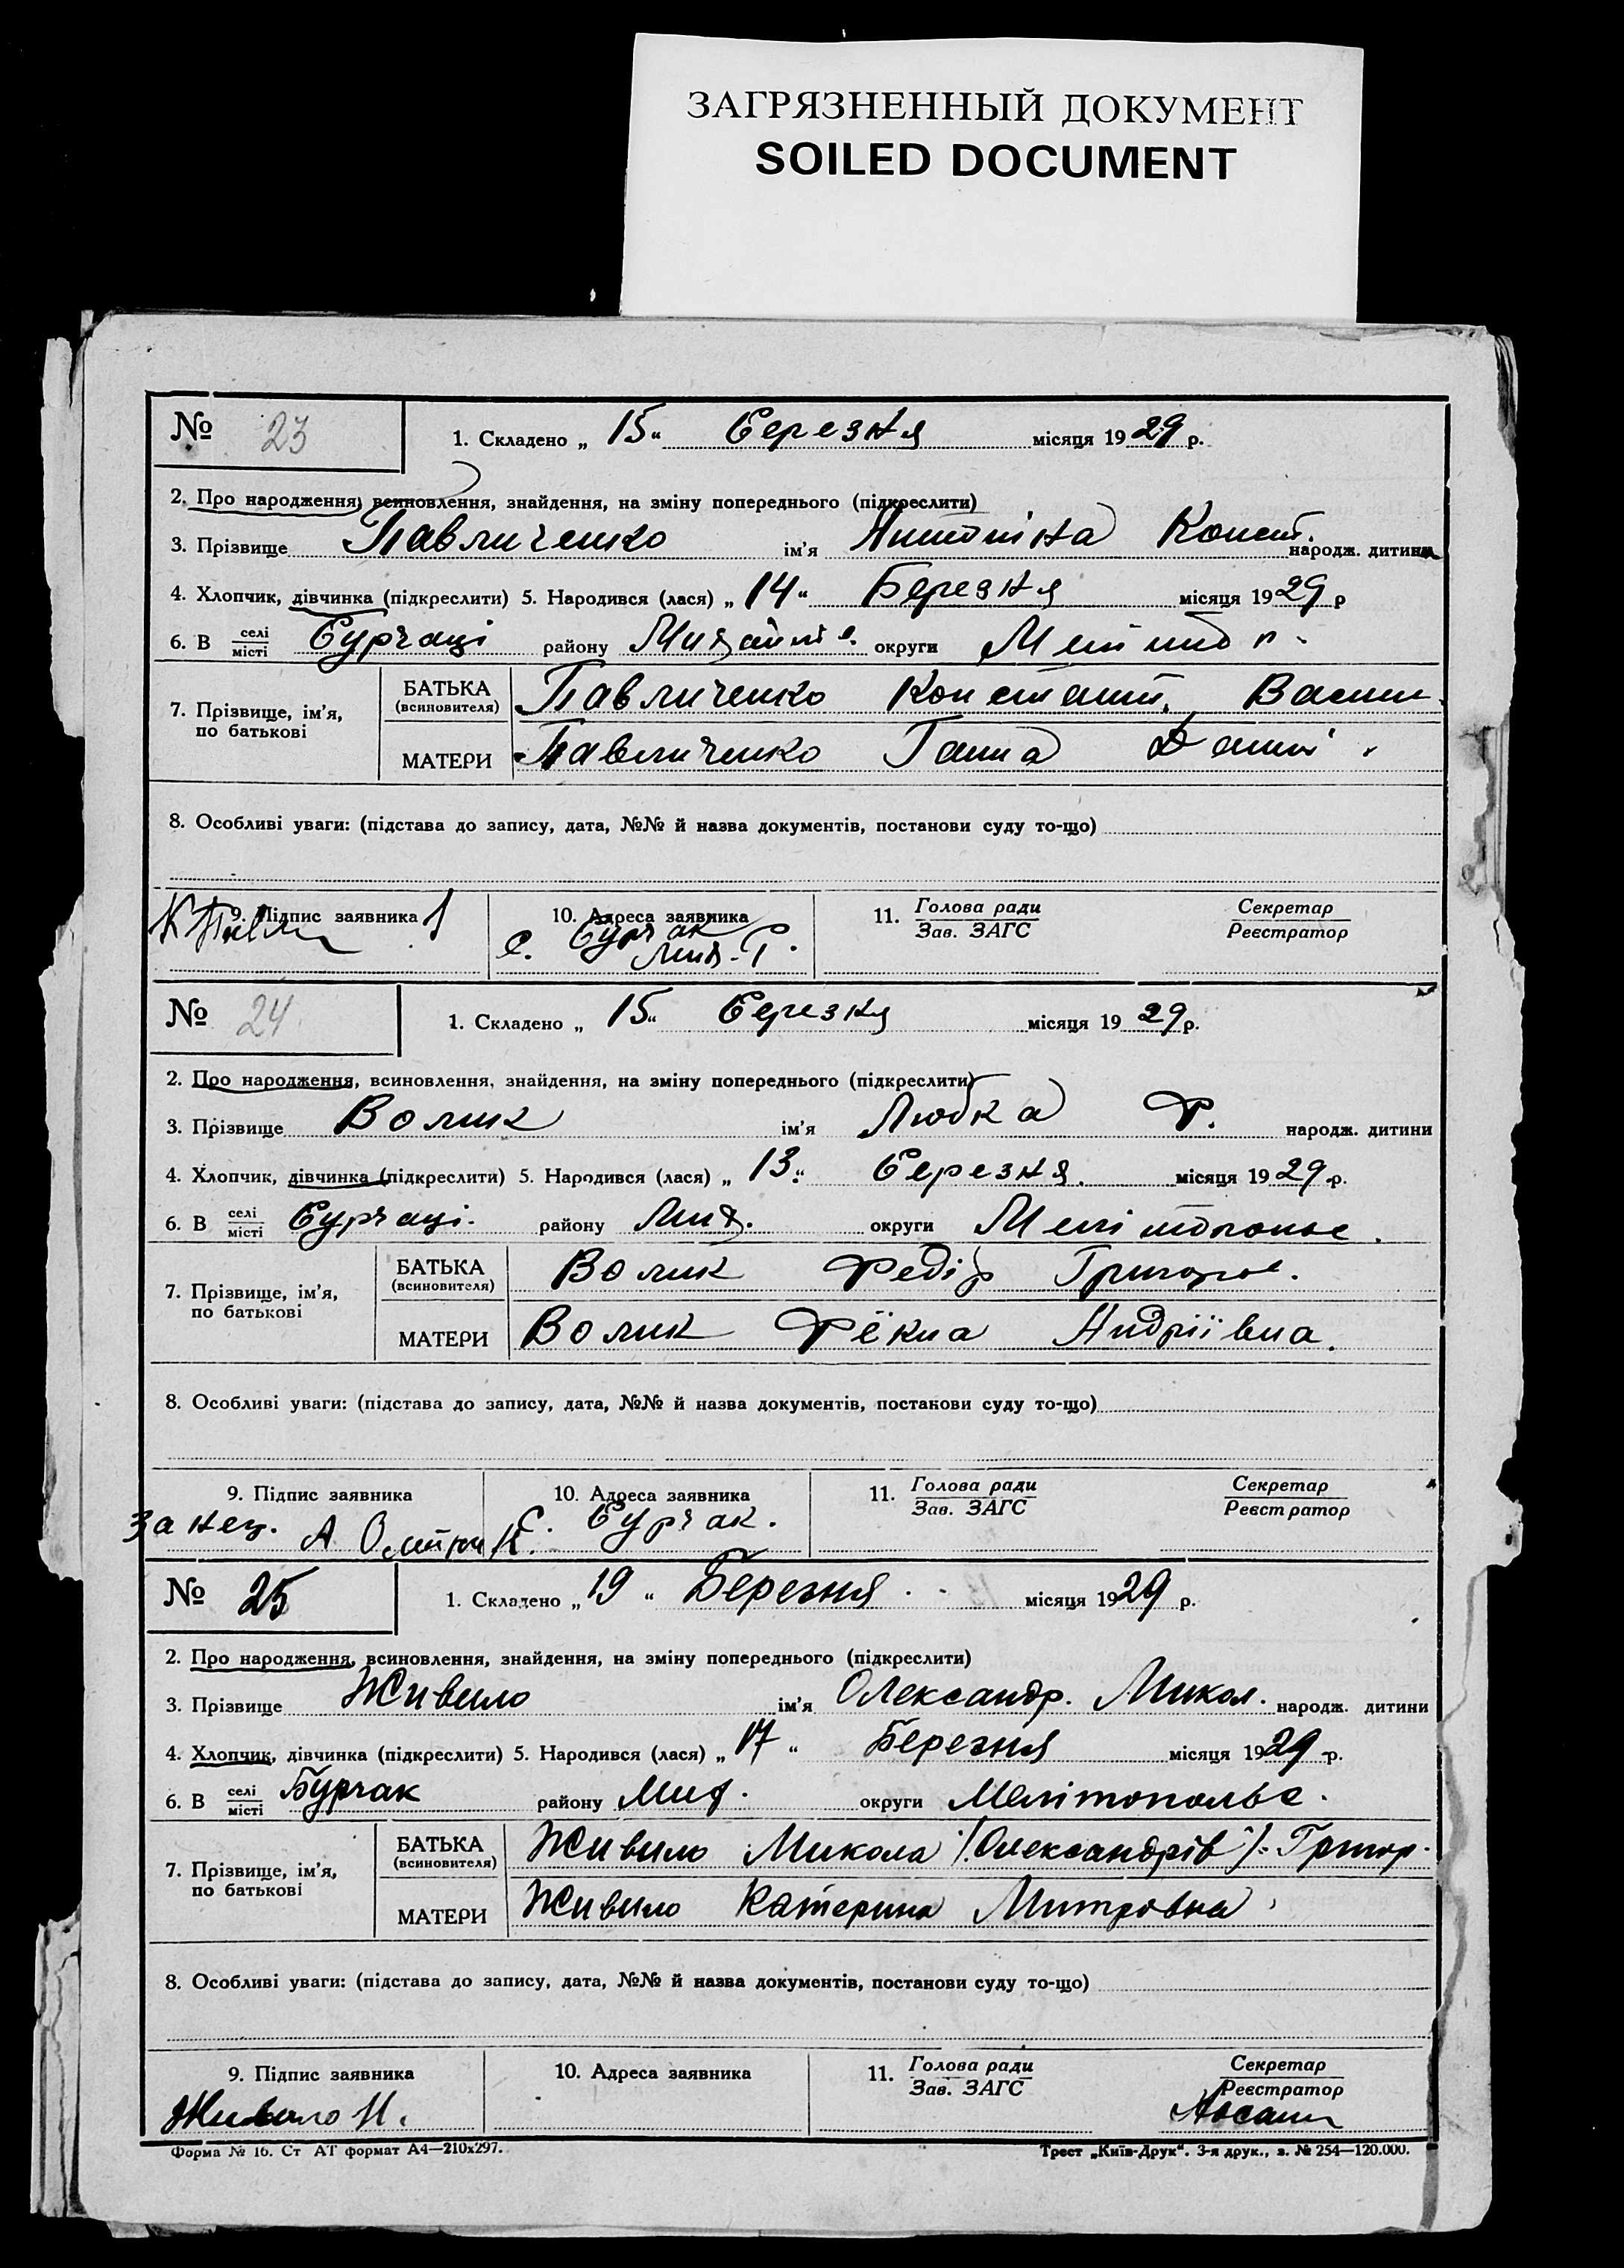 ЗАГРЯЗНЕННЫЙ ДОКУМЕНТ
SOILED DOCUMENT
№ 23
1. Складено „ 15 “ березня місяця 1929 р.
2. Про народження, всиновлення, знайдення, на зміну попереднього (підкреслити)
3. Прізвище Павличенко ім’я Антоніна Конст. народж. дитини
4. Хлопчик, дівчинка (підкреслити) 5. Народився (лася) „ 14 “ Березня місяця 1929 р
6. В селі місті Бурчаці району округи
7. Прізвище, ім’я, по батькові
БАТЬКА (всиновителя) Павличенко Констант. Васил.
МАТЕРИ Павличенко Ганна
8. Особливі уваги: (підстава до запису, дата, №№ й назва документів, постанови суду то-що)
9. Підпис заявника 10. Адреса заявника 11. Голова ради Зав. ЗАГС Секретар Реєстратор
с. Бурчак
Мих. Р.
№ 24
1. Складено „ 15 “ березня місяця 1929 р.
2. Про народження, всиновлення, знайдення, на зміну попереднього (підкреслити)
3. Прізвище Волик ім’я Любка Ф. народж. дитини
4. Хлопчик, дівчинка (підкреслити) 5. Народився (лася) „ 13 “ березня. місяця 1929 р.
6. В селі місті Бурчаці. району Мих. округи Мелітопольс.
7. Прізвище, ім’я, по батькові
БАТЬКА (всиновителя) Волик Федір Григоров.
МАТЕРИ Волик Фёкла Андріївна.
8. Особливі уваги: (підстава до запису, дата, №№ й назва документів, постанови суду то-що)
9. Підпис заявника 10. Адреса заявника 11. Голова ради Зав. ЗАГС Секретар Реєстратор
за нец. А с. Бурчак.
№ 25
1. Складено „ 19 “ Березня місяця 1929 р.
2. Про народження, всиновлення, знайдення, на зміну попереднього (підкреслити)
3. Прізвище Живило ім’я Олександр. Микол. народж. дитини
4. Хлопчик, дівчинка (підкреслити) 5. Народився (лася) „ 17 “ Березня місяця 1929 р.
6. В селі місті Бурчак району Мих. округи Мелітопольс.
7. Прізвище, ім’я, по батькові
БАТЬКА (всиновителя) Живило Микола /.Олександрів/. Григор.
МАТЕРИ Живило Катерина Митровна
8. Особливі уваги: (підстава до запису, дата, №№ й назва документів, постанови суду то-що)
9. Підпис заявника 10. Адреса заявника 11. Голова ради Зав. ЗАГС Секретар Реєстратор
Живило Н.
Форма № 16. Ст АТ формат А4—210х297. Трест „Київ-Друк“. 3-я друк., з. № 254—120.000.